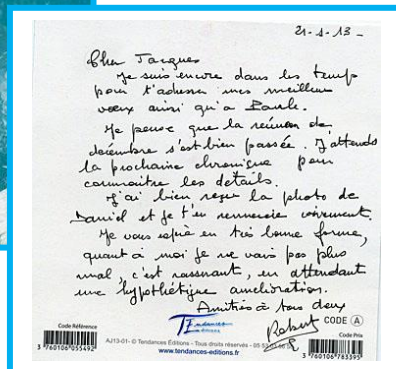 21-1-13 -
Cher Jacques
Je suis encore dans les temps
pour t'adresser mes meilleurs
vœux ainsi qu'a Paule.
Je pense que la réunion de
décembre s'est bien passée. J'attends
la prochaine chronique pour
connaitre les détails.
J'ai bien reçu la photo de
Daniel et je t'en remercie vivement.
Je vous espère en très bonne forme,
quant à moi je ne vais pas plus
mal, c'est rassurant, en attendant
une hypothétique amélioration.
Amitiés à tous deux
Robert
CODE A
Code Référence
3 760106 055492
Tendances
Editions
AJ13-01- © Tendances Éditions - Tous droits réservés -
www.tendances-editions.fr
Code Prix
3 760106 763395